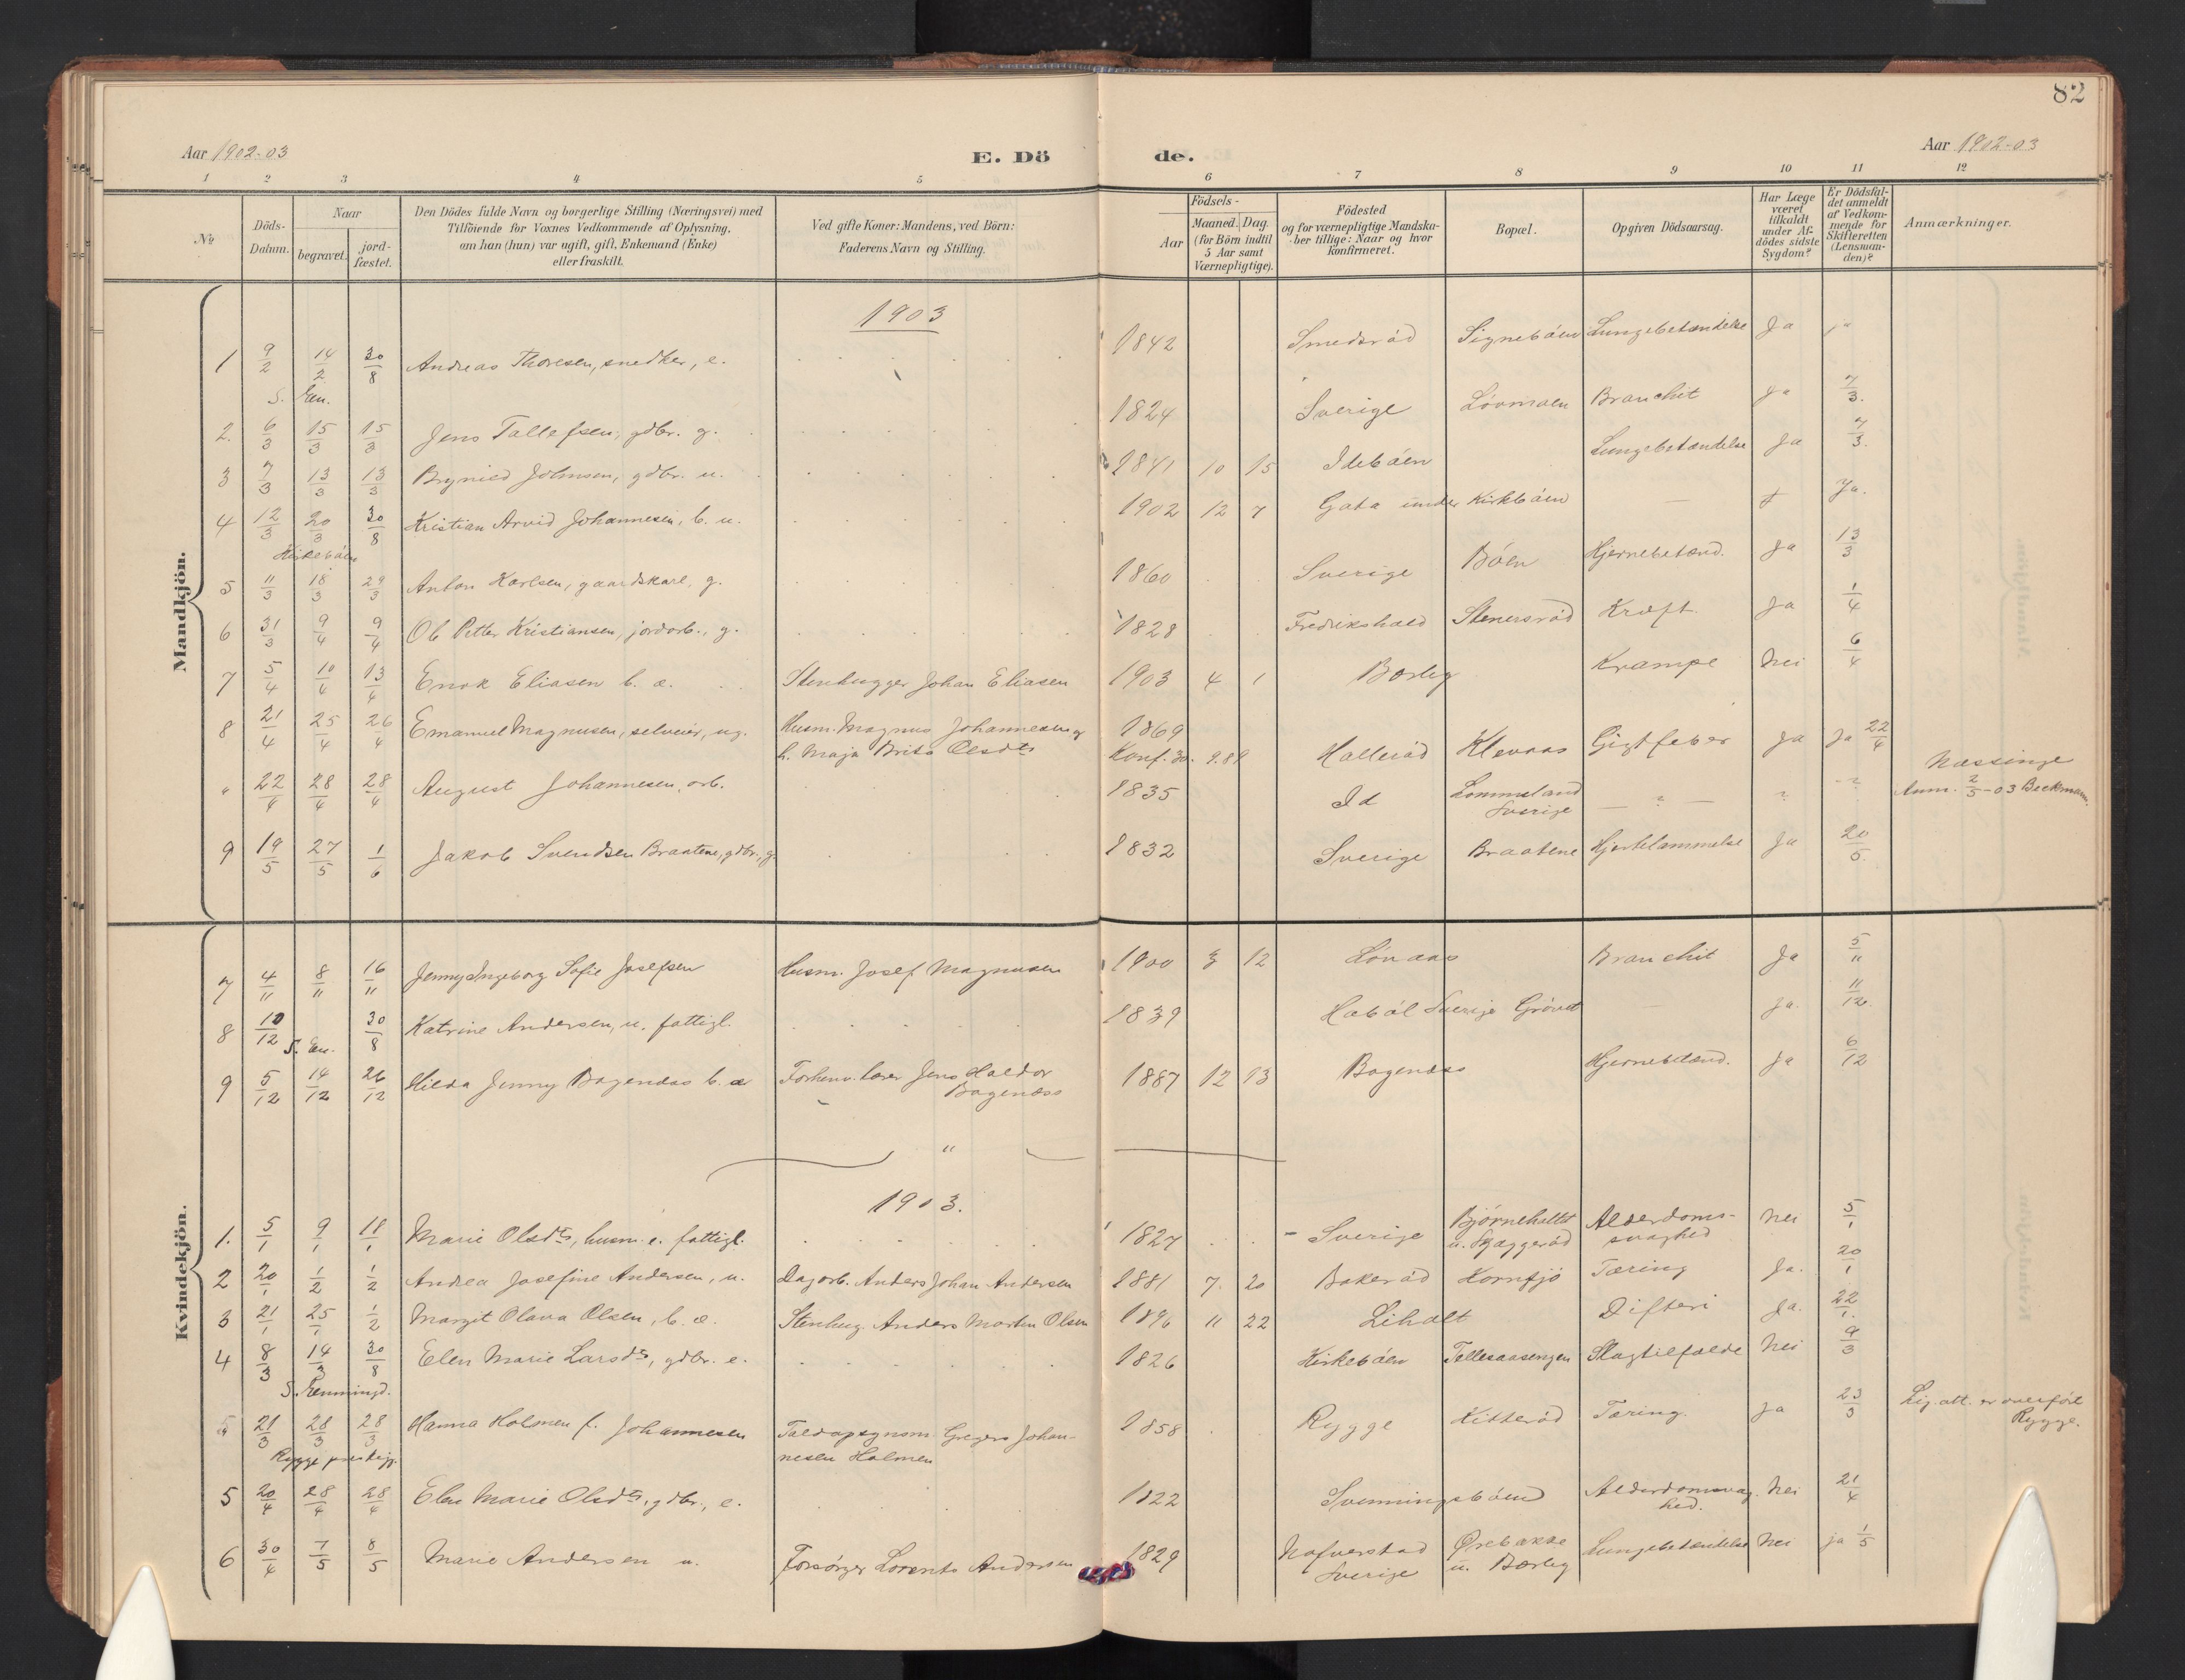 82
Aar 1902-03
E. Dö
de.
Aar 1902-03
1 2 3 4 5 6 7 8 9 10 11 12
№
Döds-Datum.
Naar
begravet.
jord-fæstet.
Den Dödes fulde Navn og borgerlige Stilling (Næringsvei) med
Tilföiende for Voxnes Vedkommende af Oplysning,
om han (hun) var ugift, gift, Enkemand (Enke)
eller fraskilt.
Ved gifte Koner: Mandens, ved Börn:
Faderens Navn og Stilling.
Födsels-
Aar
Maaned. Dag.
(for Börn indtil
5 Aar samt
Værnepligtige).
Födested
og for værnepligtige Mandska-
ber tillige: Naar og hvor
konfirmeret.
Bopæl.
Opgiven Dödsaarsag.
Har Læge
været
tilkaldt
under Af-
dödes sidste
Sygdom?
Er Dödsfal-
det anmeldt
af Vedkom-
mende for
Skifteretten
(Lensman-
den)?
Anmærkninger.
Mandkjön.
1903
1 9/2 14/2 30/8 Andreas Thoresen, snedker, e. 1842 Smedsröd Signebøen Lungebetændelse Ja ja
S. En.
2. 6/3 15/3 15/3 Jens Tallefsen, gdbr. g. 1824 Sverige Løvmoen Bronchit Ja 7/3.
3 7/3 13/3 13/3 Brynild Johnsen, gdbr. u. 1841 10 15 Idebøen Lungebetændelse Ja 7/3.
4 12/3 20/3 30/8 Kristian Arvid Johannesen, b. u. 1902 12 7 Gata under Kirkbøen — Ja.
Kirkebøen
5 11/3 18/3 29/3 Anton Karlsen, gaardskarl, g. 1860 Sverige Bøen Hjernebetænd. Ja 13/3
6 31/3 9/4 9/4 Ol. Petter Kristiansen, jordarb., g. 1828 Fredrikshald Stenersrød Kræft. Ja 1/4
7 5/4 10/4 13/4 Enok Eliasen b. æ. Stenhugger Johan Eliasen 1903 4 1 Børley Krampe Nei 6/4
8 21/4 25/4 26/4 Emanuel Magnusen, selveier, ug. Husm. Magnus Johannesen og 1869
h. Maja Brita Olsdtr Konf. 30. 9.89 Hallerød Klevaas Gigtfeber Ja Ja 22/4
" 22/4 28/4 28/4 August Johannesen, arb. 1835 Id Lommeland
Sverige — ? — ? - ? Næssinge
Anm. 2/5-03 Beckmann.
9 19/5 27/5 1/6 Jakob Svendsen Braatene, gdbr., g. 1832 Sverige Braatene Hjertelammelse Ja 20/5.
Kvindekjön.
7 4/11 8/11 16/11 Jenny Ingeborg Sofie Josefsen Husm. Josef Magnusen 1900 3 12 Lønaas Bronchit Ja 5/11
8 10/12 30/8 Katrine Andersen, u. fattigl. 1839 Habøl Sverige Grøvet — Ja. 11/12
S. En.
9 5/12 14/12 26/12 Hilda Jenny Bagenæs b. æ Forhenv. lærer Jens Haldor
Bagenæss 1887 12 13 Bagenæss Hjernebetænd. Ja 6/12
"
1903.
1. 5/1 9/1 18/1 Marie Olsdtr, husm. e. fattigl. 1827 - Sverige Bjørneholtet
u. Skaggerød Alderdoms-
svaghed Nei 5/1
2 20/1 1/2 1/2 Andrea Josefine Andersen, u. Dagarb. Anders Johan Andersen 1881 7. 20 Bakerød Kornsjø Tæring Ja. 20/1
3 21/1 25/1 1/2 Margit Olava Olsen, b. æ. Stenhug. Anders Martin Olsen 1896 11 22 Liholt Difteri Ja. 22/1.
4 8/3 14/3 30/8 Elen Marie Larsdtr, gdbr. e. 1826 Kirkebøen Tellesaasengen Slagtilfælde Nei 9/3
S. Enningd.
5 21/3 28/3 28/3 Hanna Holmen f. Johannesen Toldopsynsm. Gregers Johan-
nesen Holmen 1858 Rygge Kitterød Tæring. Ja 23/3 Lig. att. er overført
Rygge.
Rygge prestegj.
5 20/4 28/4 28/4 Elen Marie Olsdtr, gdbr., e. 1822 Svenningsbøen Alderdomsvag-
hed. Nei 21/4
6 30/4 7/5 8/5 Marie Andersen u. Forsørger Lorents Andersen 1829 Nafverstad
Sverige Ørebakke
u. Børley Lungebetændelse Nei ja 1/5